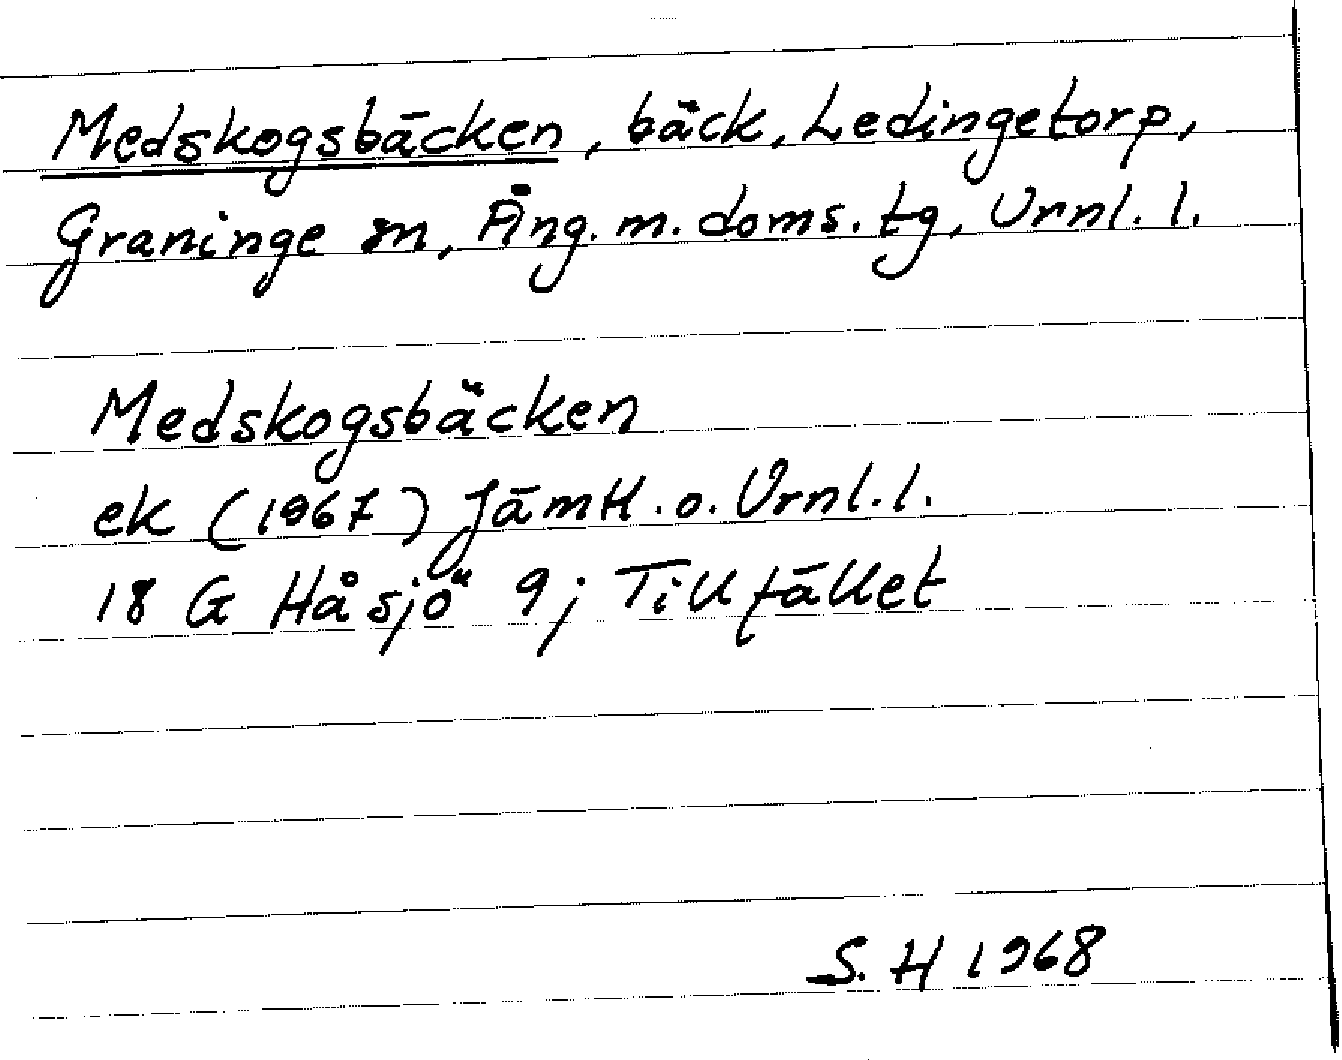 Medskogsbäcken, bäck, Ledingetorp,
Graninge sn, Ång. m. doms. tg, Vrnl. l.
Medskogsbäcken
ek (1967) Jämtl. o. Vrnl. l.
18 G Håsjö 9j Tillfället
S. H 1968